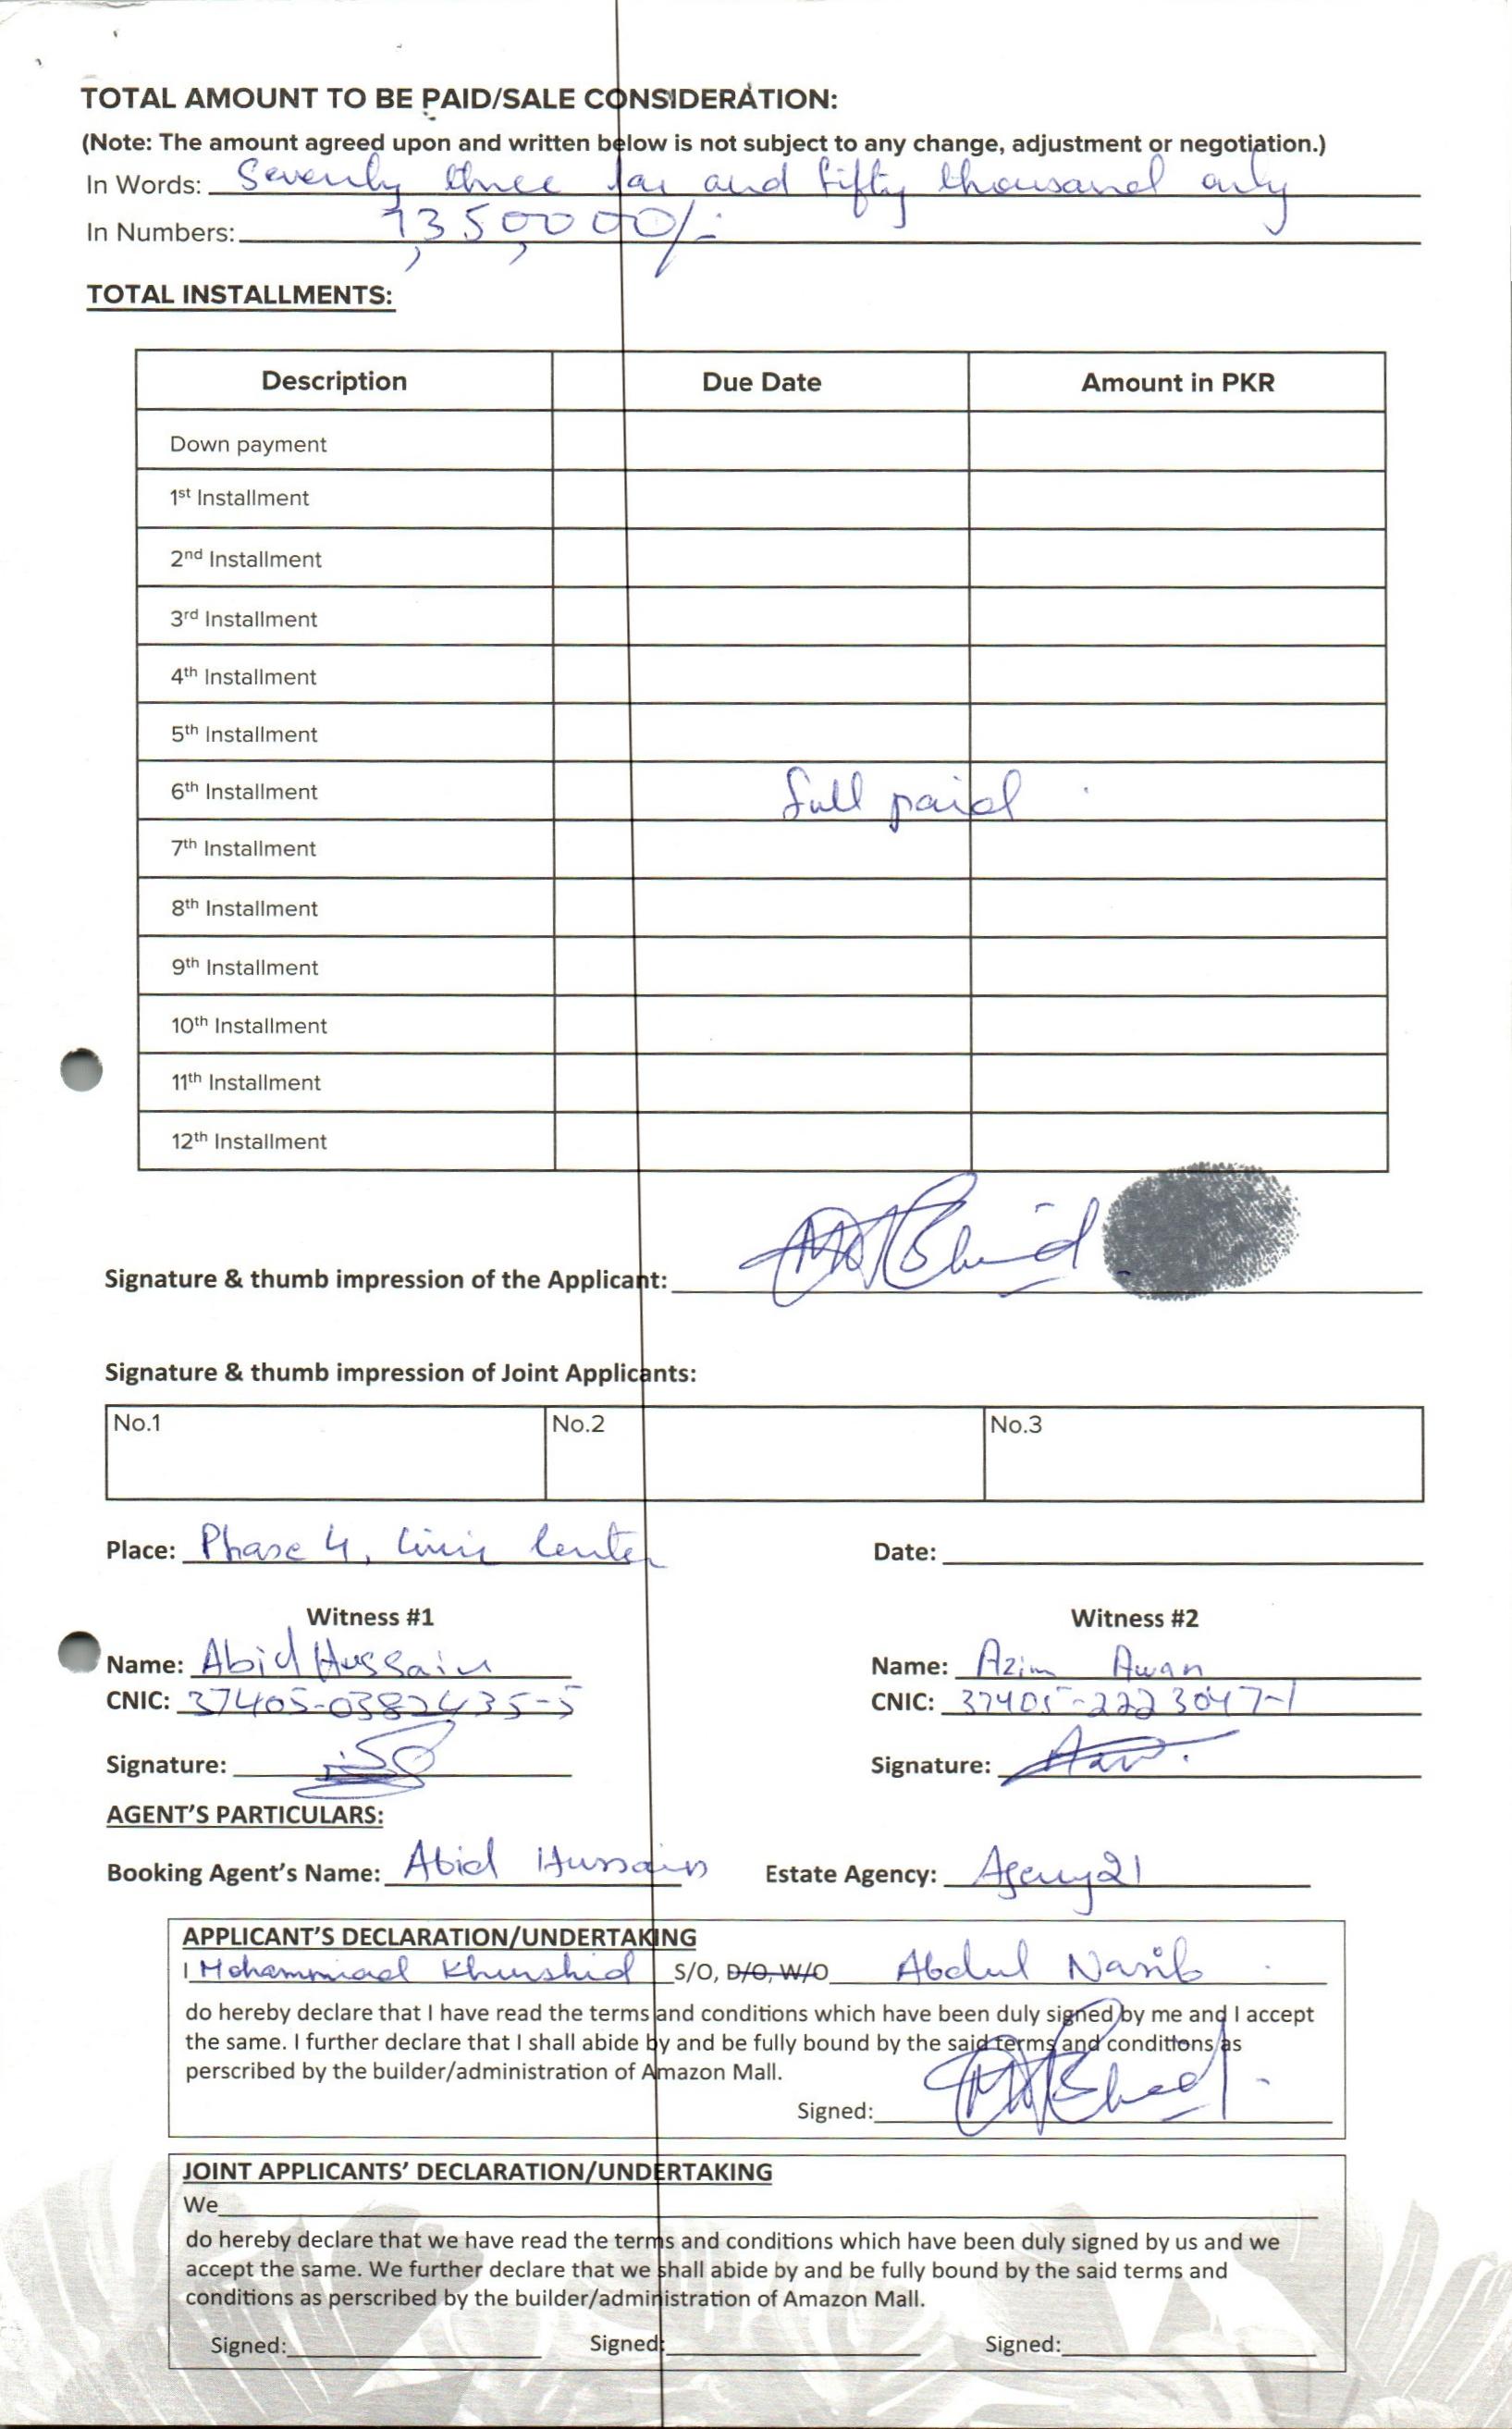 TOTAL AMOUNT TO BE PAID/SALE CONSIDERATION:
(Note: The amount agreed upon and written below is not subject to any change, adjustment or negotiation.)
In Words: Seventy three lac and fifty thousand only
In Numbers: 73,50,000/-
TOTAL INSTALLMENTS:
Description Due Date Amount in PKR
Down payment
1st Installment
2nd Installment
3rd Installment
4th Installment
5th Installment
6th Installment full paid
7th Installment
8th Installment
9th Installment
10th Installment
11th Installment
12th Installment
Signature & thumb impression of the Applicant:
Signature & thumb impression of Joint Applicants:
No.1 No.2 No.3
Place: Phase 4, Civic Center Date:
Witness #1 Witness #2
Name: Abid Hussain Name: Azim Awan
CNIC: 37405-0382435-5 CNIC: 37405-2223047-1
Signature: Signature:
AGENT'S PARTICULARS:
Booking Agent's Name: Abid Hussain Estate Agency: Agency21
APPLICANT'S DECLARATION/UNDERTAKING
I Mohammad Khurshid S/O, D/O, W/O Abdul Nasib
do hereby declare that I have read the terms and conditions which have been duly signed by me and I accept
the same. I further declare that I shall abide by and be fully bound by the said terms and conditions as
perscribed by the builder/administration of Amazon Mall.
Signed:
JOINT APPLICANTS' DECLARATION/UNDERTAKING
We
do hereby declare that we have read the terms and conditions which have been duly signed by us and we
accept the same. We further declare that we shall abide by and be fully bound by the said terms and
conditions as perscribed by the builder/administration of Amazon Mall.
Signed: Signed: Signed: